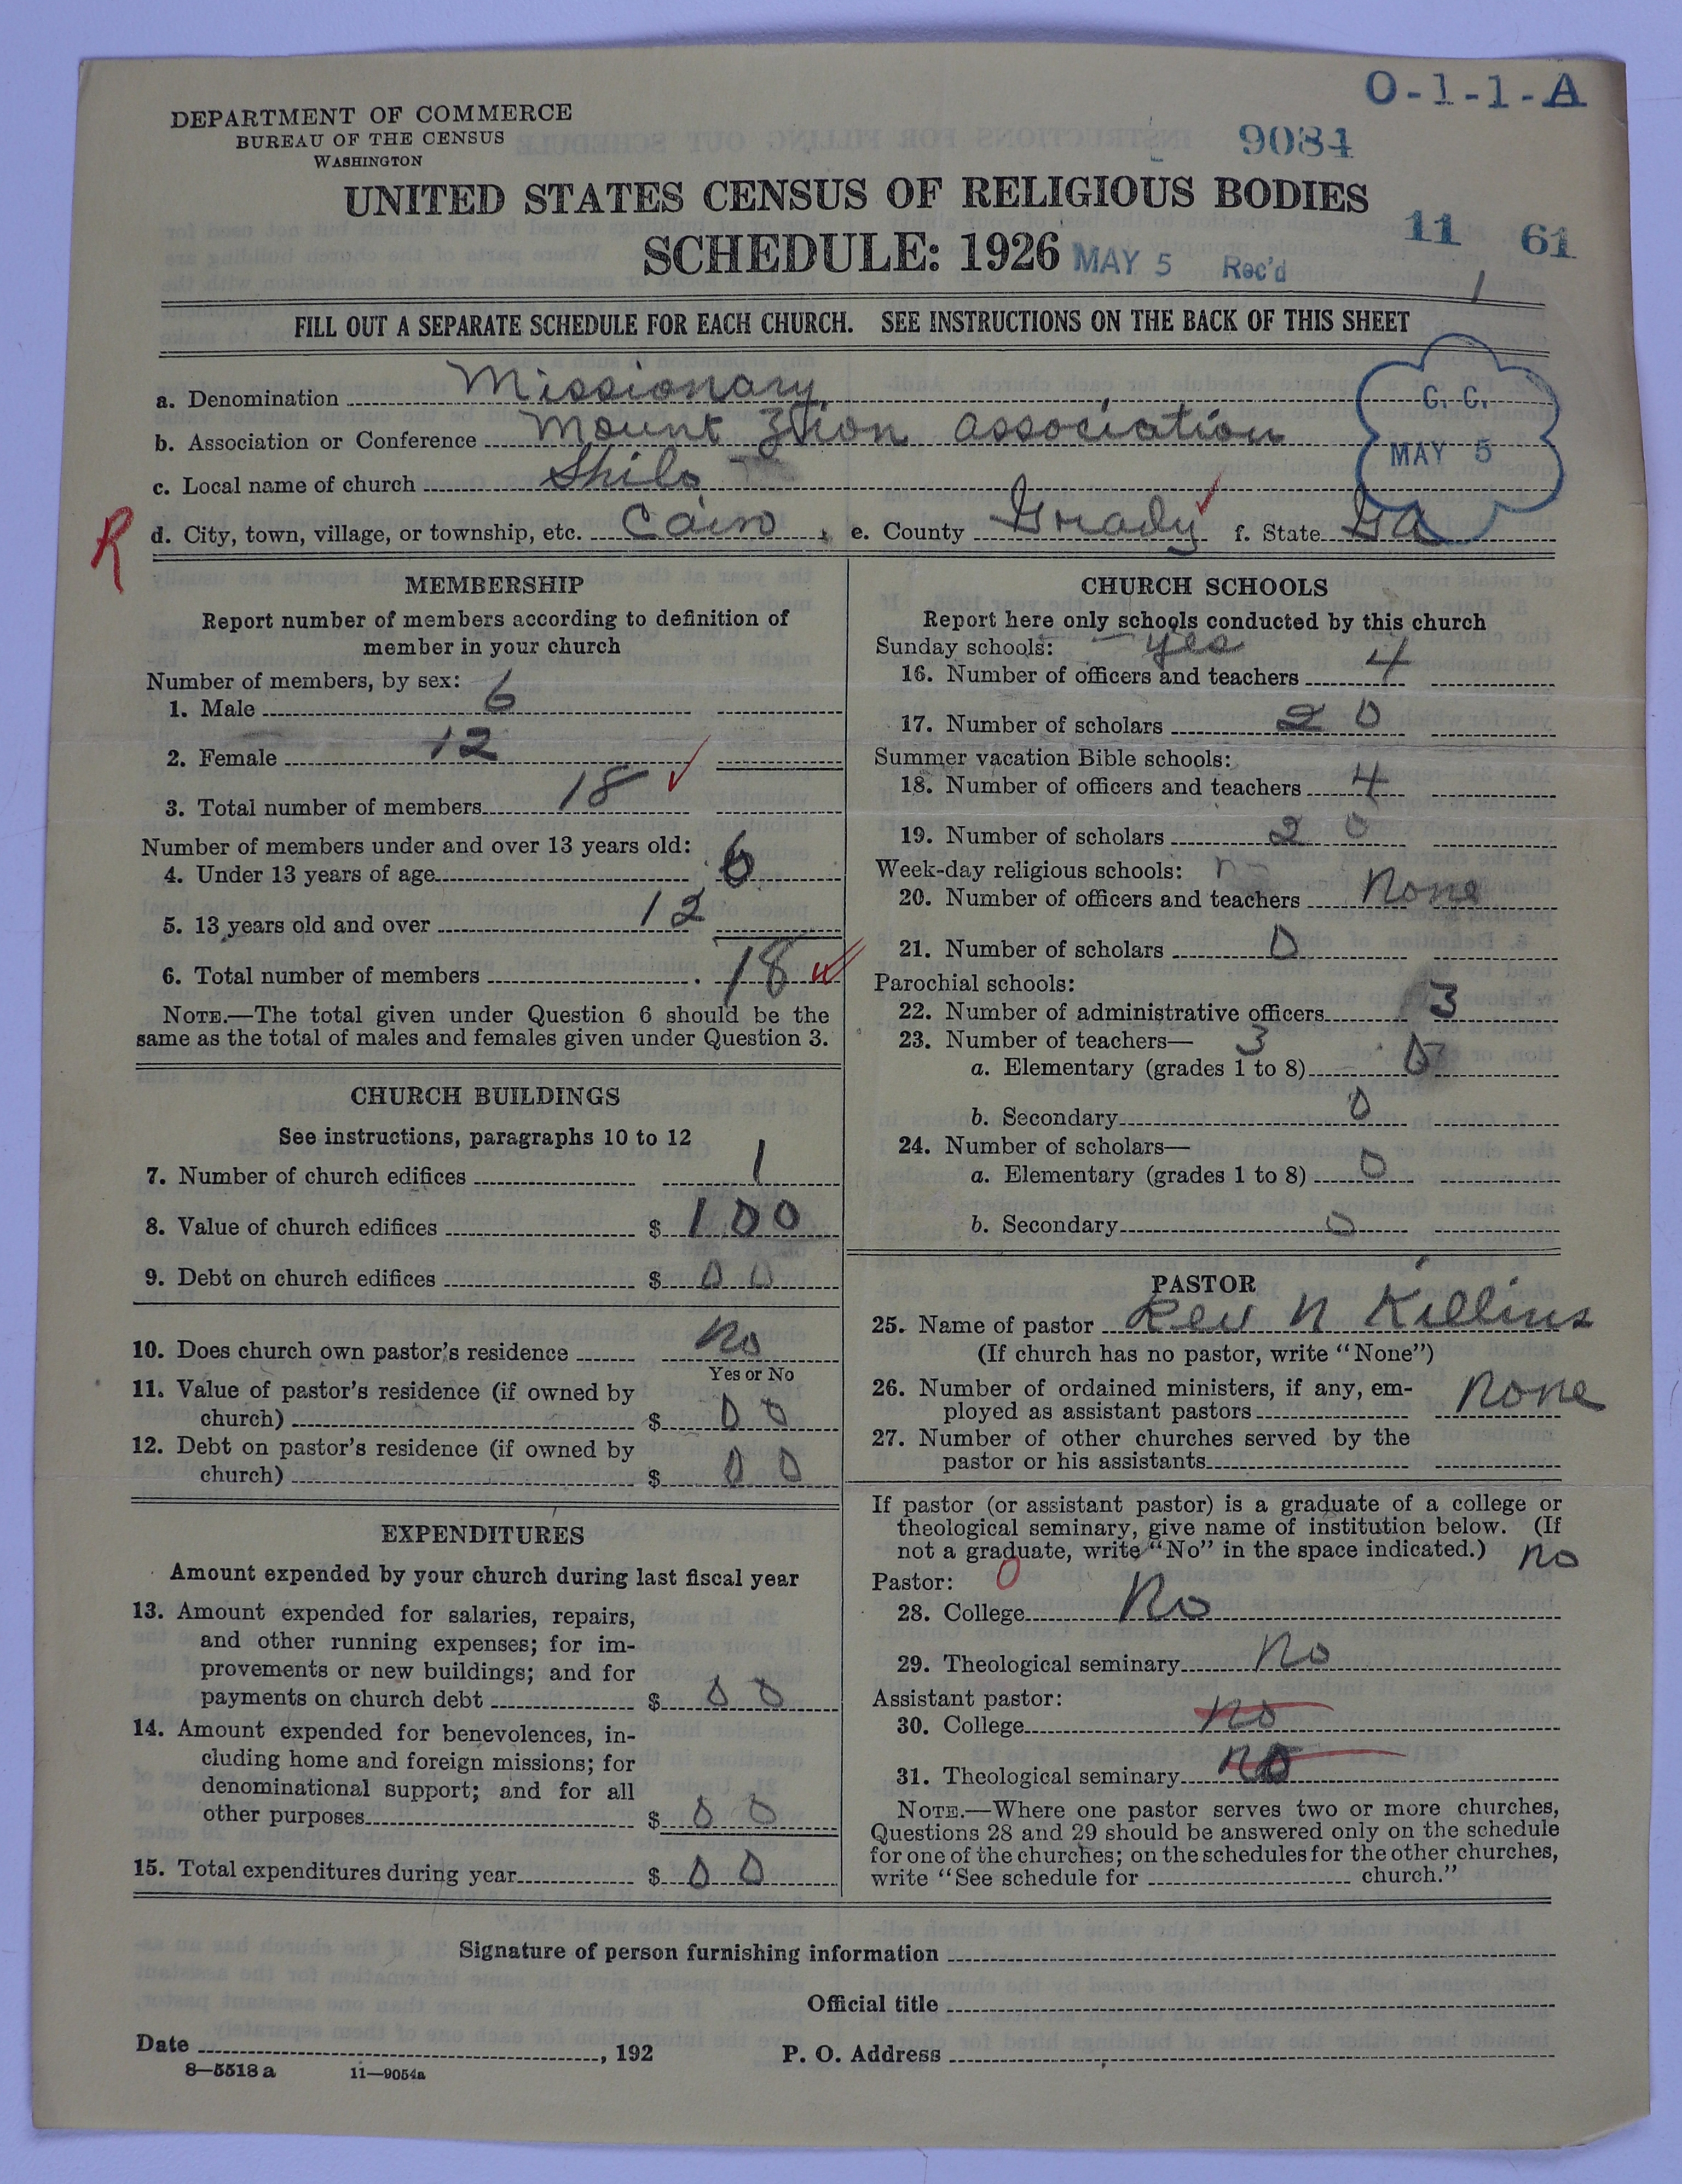 O-1-1-A
DEPARTMENT OF COMMERCE
BUREAU OF THE CENSUS
WASHINGTON
9084
UNITED STATES CENSUS OF RELIGIOUS BODIES
SCHEDULE: 1926 MAY 5 Rec'd 11 61
1
FILL OUT A SEPARATE SCHEDULE FOR EACH CHURCH. SEE INSTRUCTIONS ON THE BACK OF THIS SHEET
a. Denomination Missionary
b. Association or Conference Mount Zion Association
c. Local name of church Shilo
G. C.
MAY 5
R d. City, town, village, or township, etc. Cairo, e. County Grady f. State Ga
MEMBERSHIP
Report number of members according to definition of
member in your church
Number of members, by sex:
1. Male 6
2. Female 12
3. Total number of members 18
Number of members under and over 13 years old:
4. Under 13 years of age 6
5. 13 years old and over 12
6. Total number of members 18
NOTE.—The total given under Question 6 should be the
same as the total of males and females given under Question 3.
CHURCH BUILDINGS
See instructions, paragraphs 10 to 12
7. Number of church edifices 1
8. Value of church edifices $ 100
9. Debt on church edifices $ 00
10. Does church own pastor's residence no
Yes or No
11. Value of pastor's residence (if owned by
church) $ 00
12. Debt on pastor's residence (if owned by
church) $ 00
EXPENDITURES
Amount expended by your church during last fiscal year
13. Amount expended for salaries, repairs,
and other running expenses; for im-
provements or new buildings; and for
payments on church debt $ 00
14. Amount expended for benevolences, in-
cluding home and foreign missions; for
denominational support; and for all
other purposes $ 00
15. Total expenditures during year $ 00
CHURCH SCHOOLS
Report here only schools conducted by this church
Sunday schools: yes
16. Number of officers and teachers 4
17. Number of scholars 20
Summer vacation Bible schools:
18. Number of officers and teachers 4
19. Number of scholars 20
Week-day religious schools:
20. Number of officers and teachers None
21. Number of scholars 0
Parochial schools:
22. Number of administrative officers 3
23. Number of teachers— 3
a. Elementary (grades 1 to 8) 0
b. Secondary 0
24. Number of scholars—
a. Elementary (grades 1 to 8) 0
b. Secondary 0
PASTOR
25. Name of pastor Rev N Killins
(If church has no pastor, write "None")
26. Number of ordained ministers, if any, em-
ployed as assistant pastors none
27. Number of other churches served by the
pastor or his assistants
If pastor (or assistant pastor) is a graduate of a college or
theological seminary, give name of institution below. (If
not a graduate, write "No" in the space indicated.) no
Pastor: 0
28. College No
29. Theological seminary No
Assistant pastor:
30. College no
31. Theological seminary no
NOTE.—Where one pastor serves two or more churches,
Questions 28 and 29 should be answered only on the schedule
for one of the churches; on the schedules for the other churches,
write "See schedule for church."
Signature of person furnishing information
Official title
Date , 192 P. O. Address
8—5518 a 11—9054a